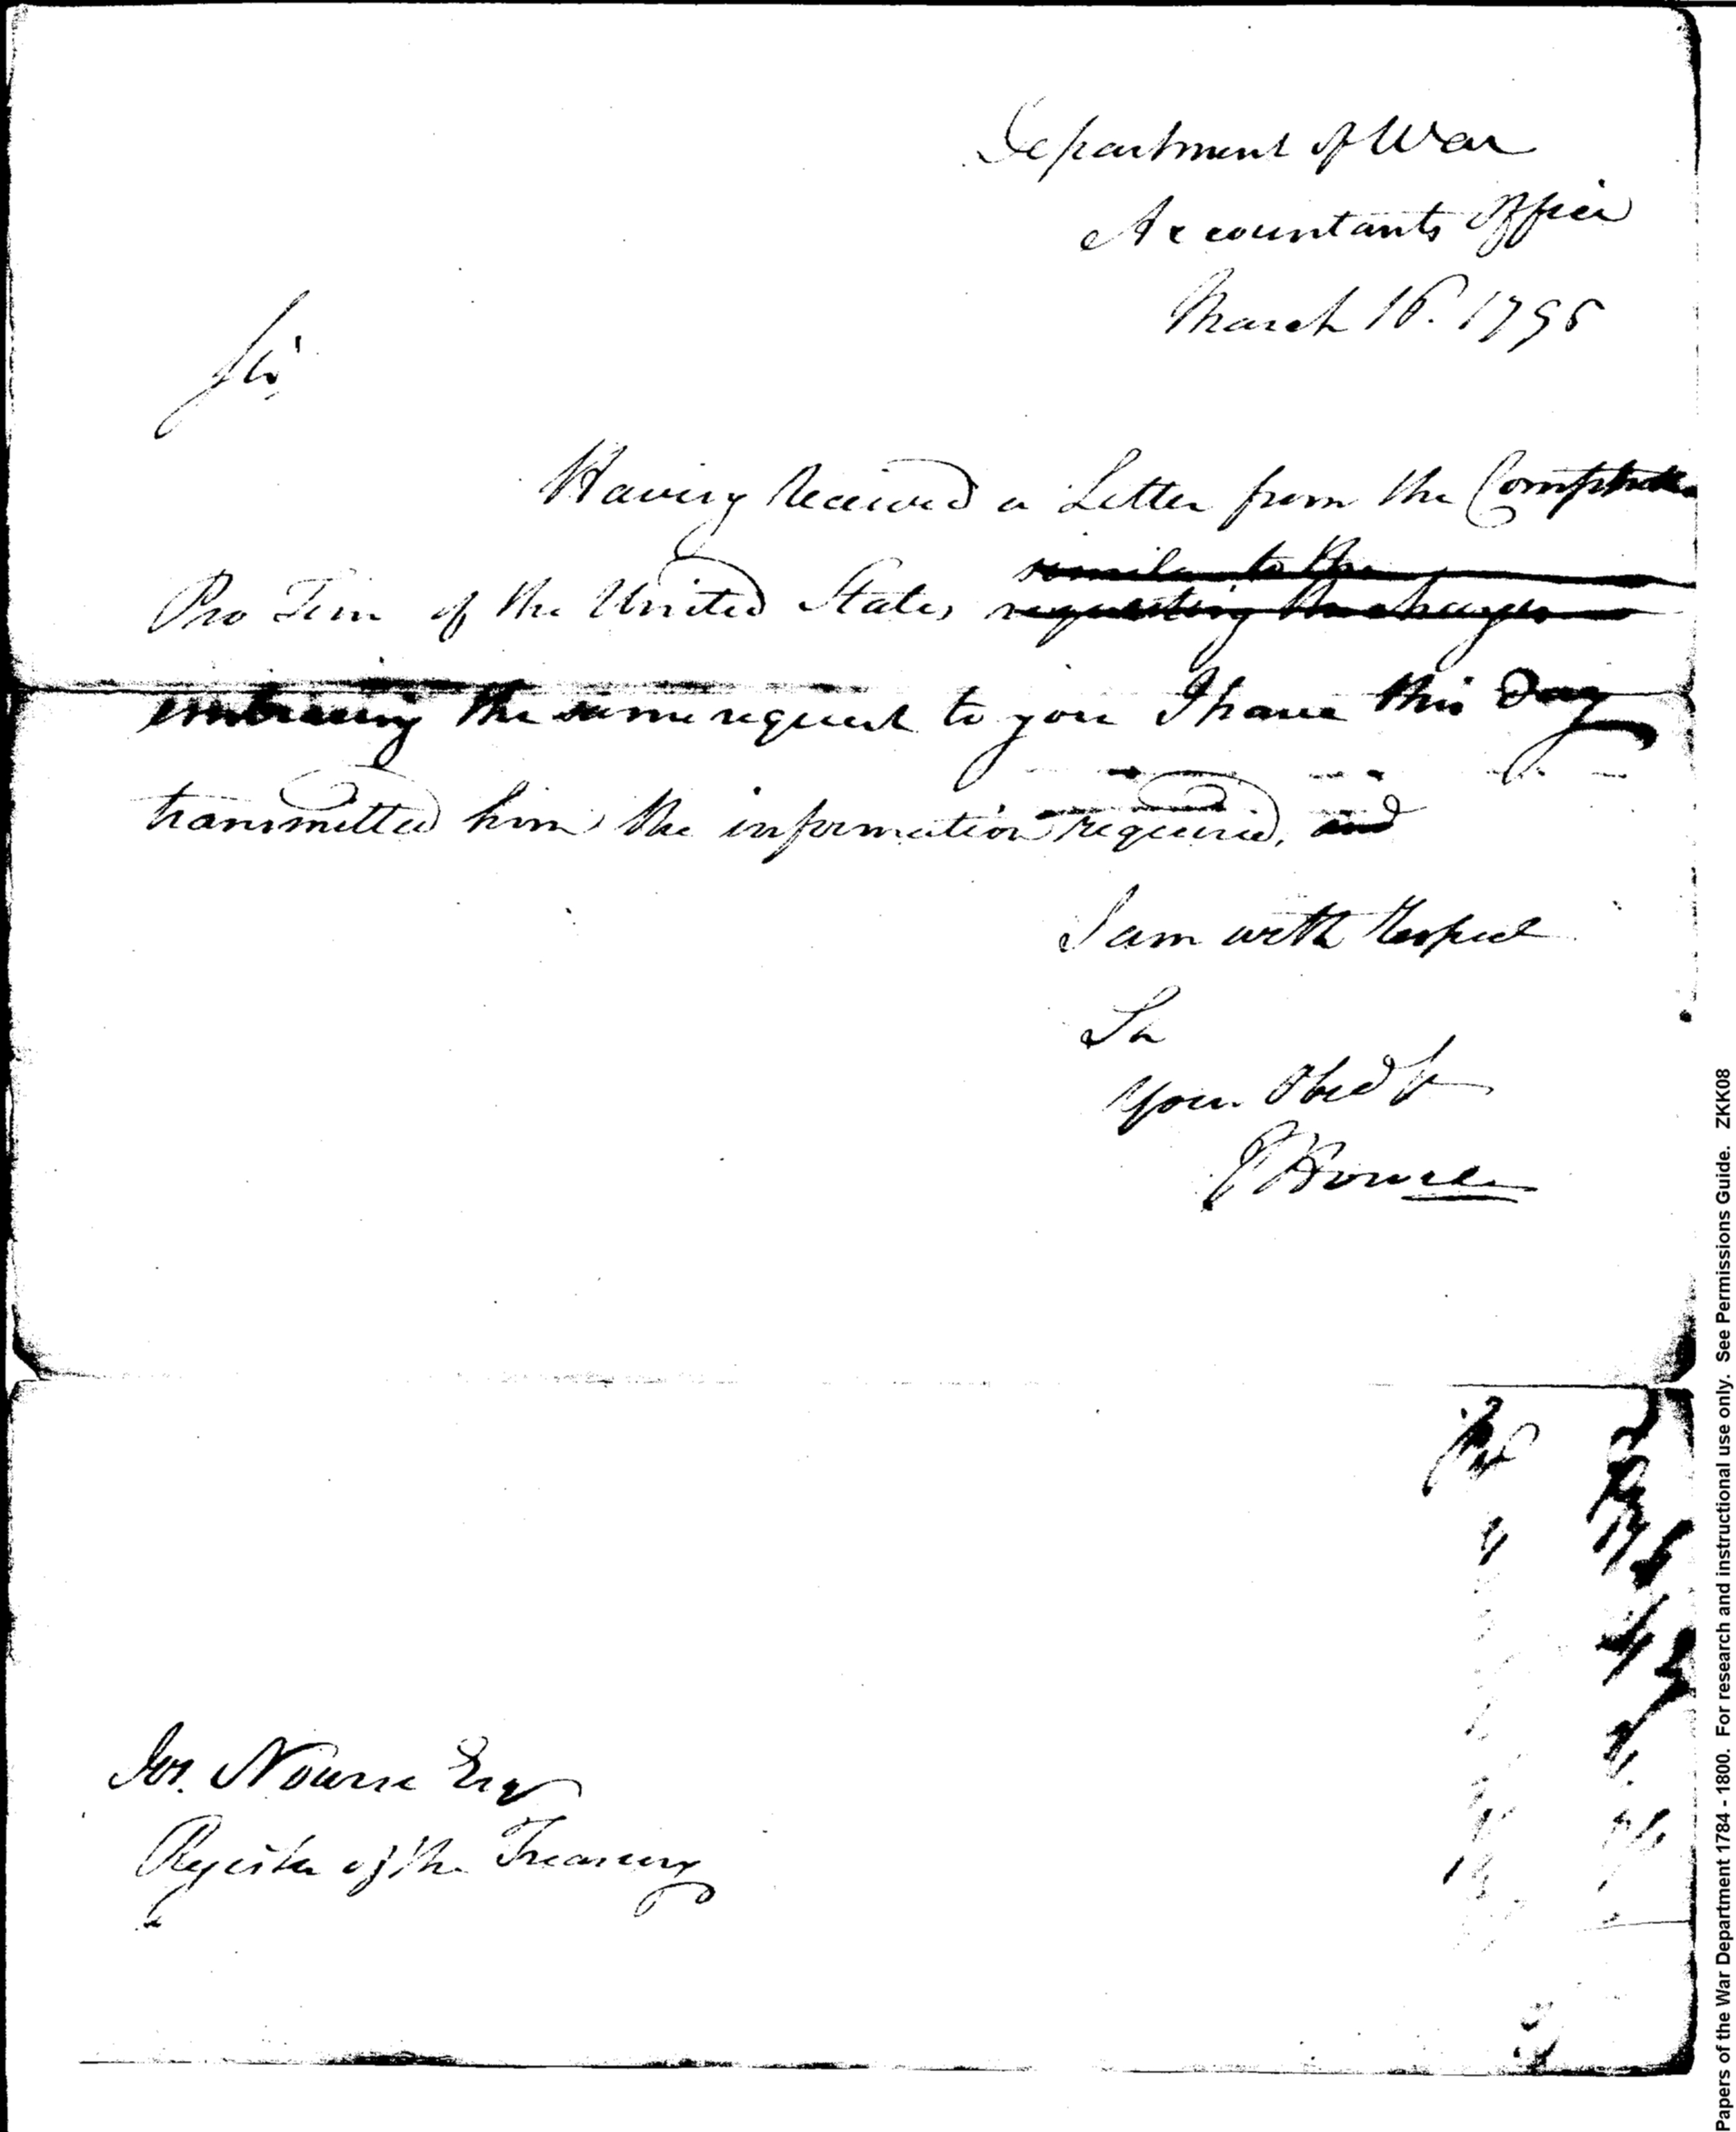 Department of War
Accountants Office
March 16. 1795
Sir,
Having Received a Letter from the Comptroller
similar to the
Pro Tem of the United States requesting the charges
embracing the same request to you I have this Day
transmitted him the information required, and
I am with Respect
Sir
Your Obed St
J Howell
Jos. Nourse Esq
Register of the Treasury
Papers of the War Department 1784 - 1800. For research and instructional use only. See Permissions Guide. ZKK08